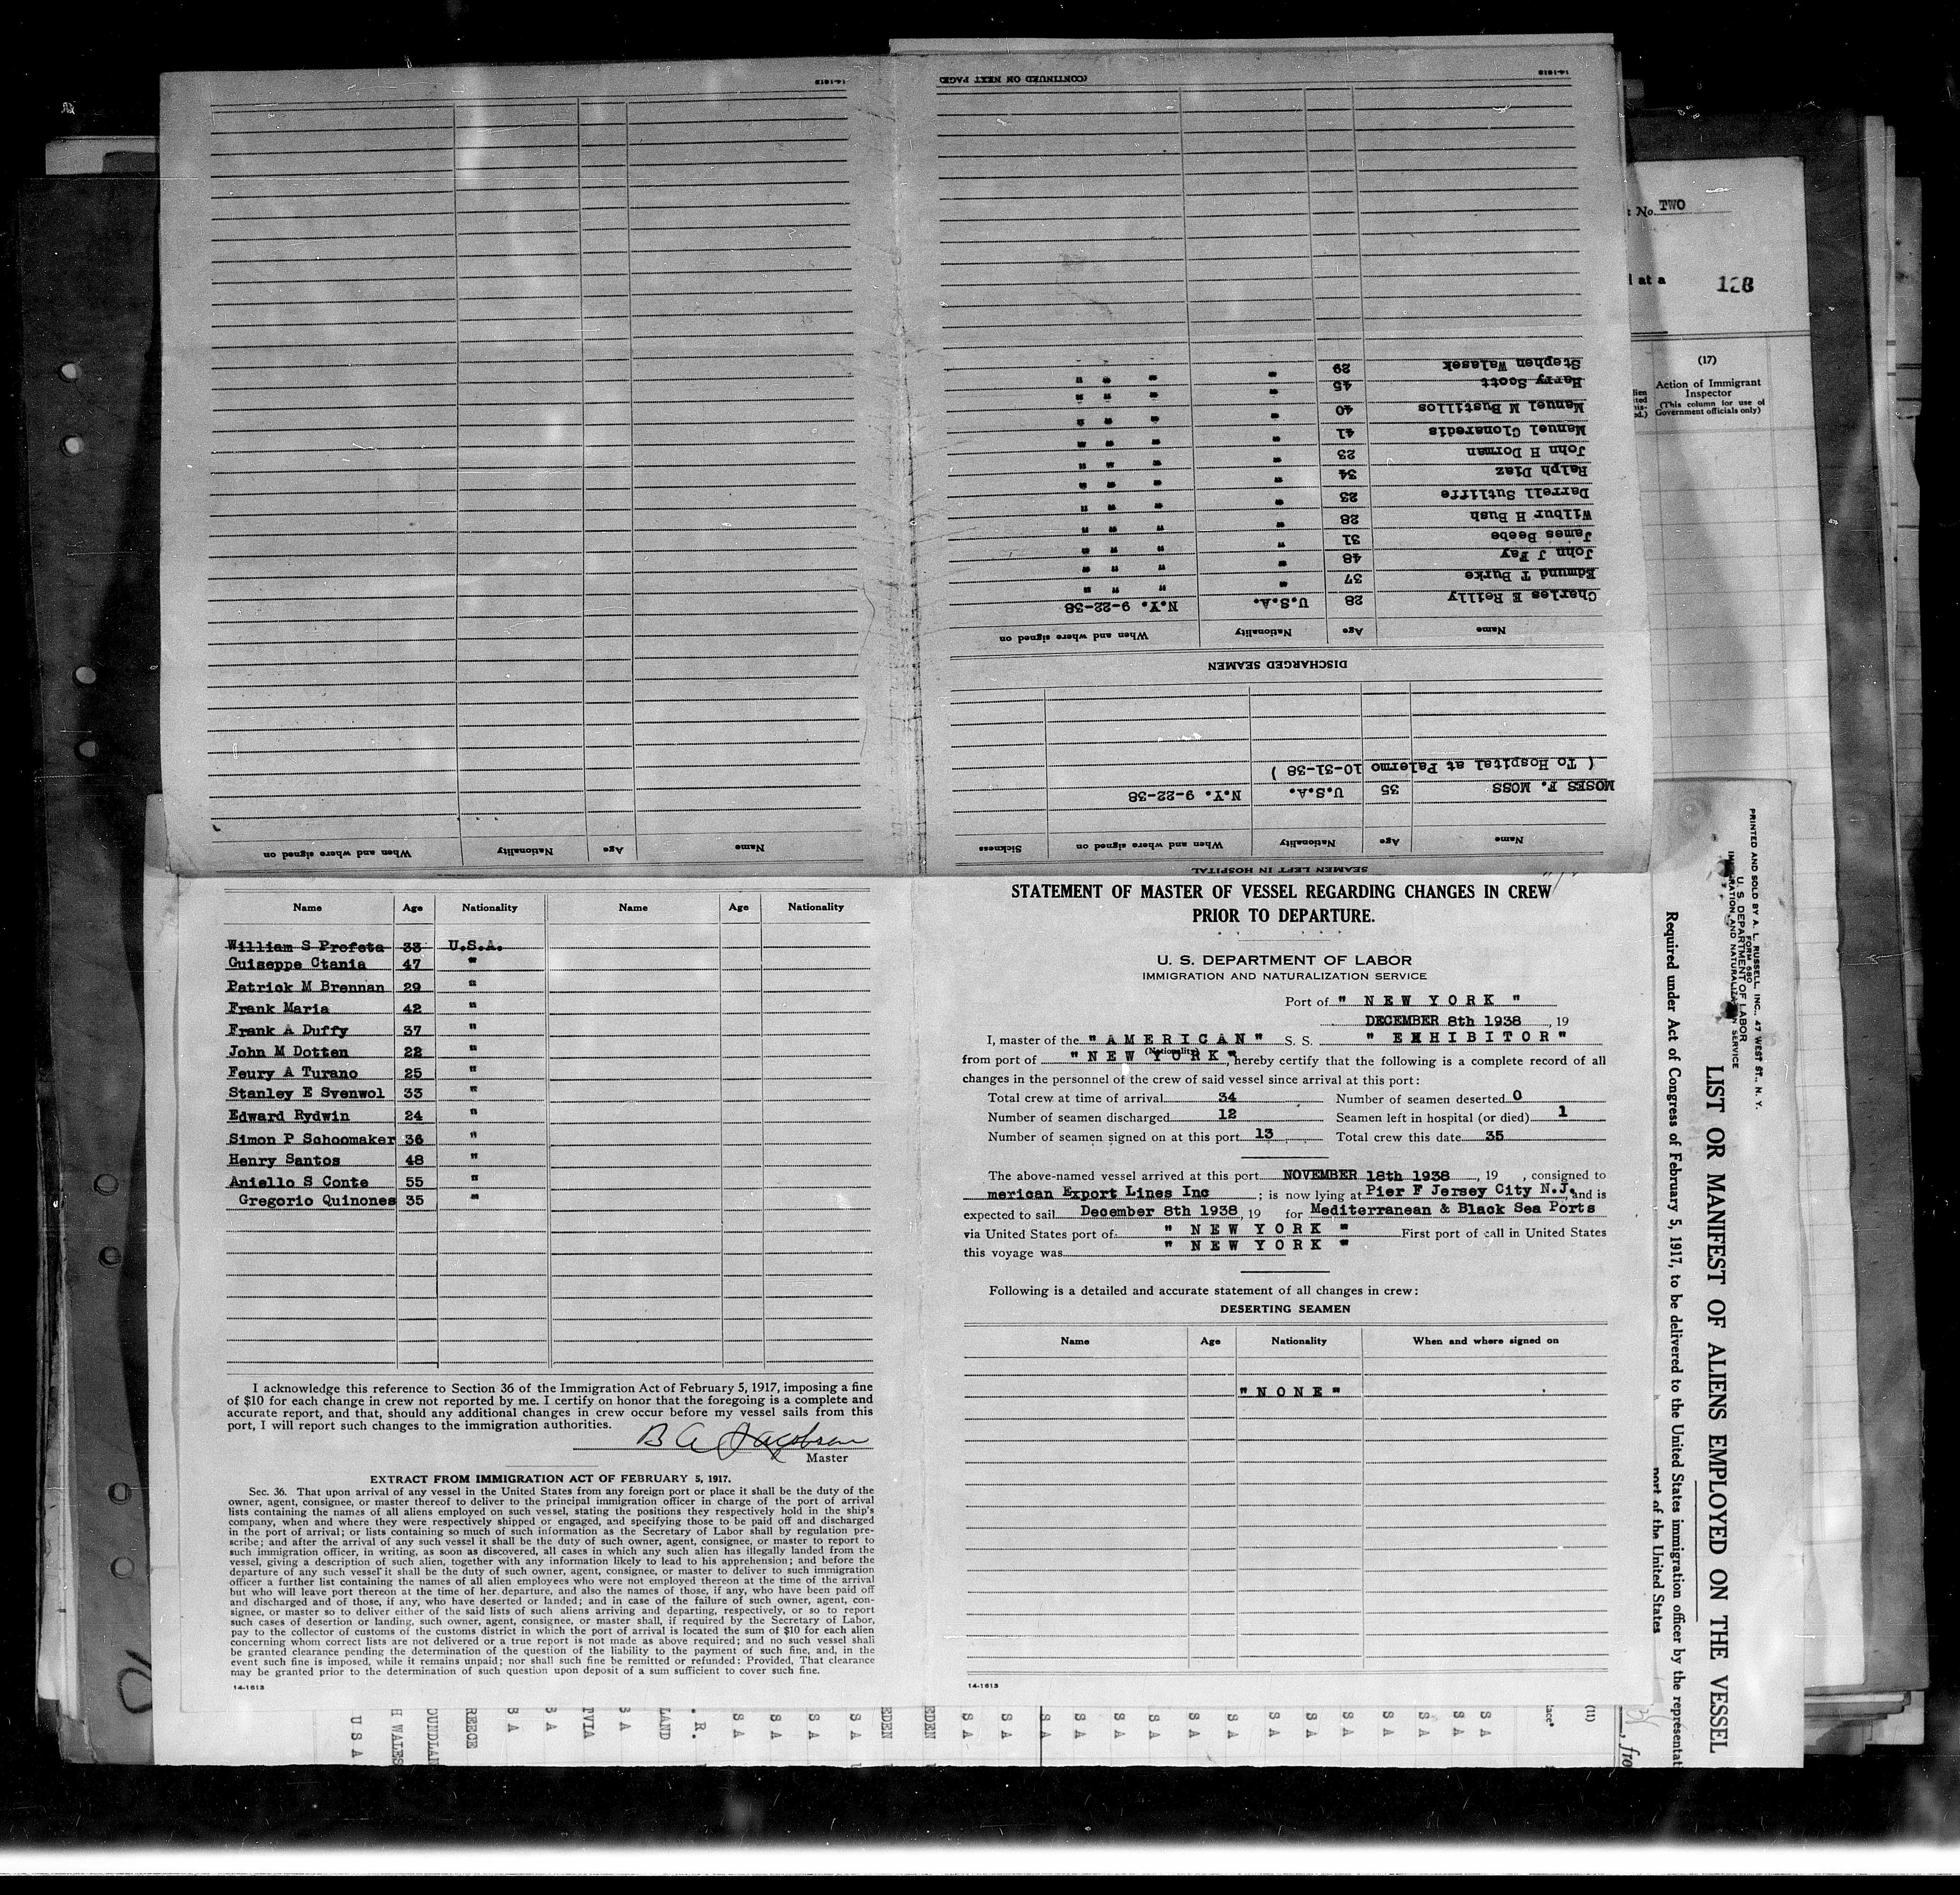 14-1613
Name Age Nationality When and where signed on
SEAMEN LEFT IN HOSPITAL
Name Age Nationality When and where signed on Sickness
MOSES F. MOSS 35 U.S.A. N.Y. 9-22-38
( To Hospital at Palermo 10-31-38 )
DISCHARGED SEAMEN
Name Age Nationality When and where signed on
Charles E Reilly 28 U.S.A. N.Y. 9-22-38
Edmund T Burke 37 " " " "
John J Fay 48 " " " "
James Beebe 31 " " " "
Wilbur H Bush 28 " " " "
Darrell Sutliffe 23 " " " "
Ralph Diaz 34 " " " "
John H Dorman 23 " " " "
Manuel Clonaredis 41 " " " "
Manuel M Bustillos 40 " " " "
Harry Scott 45 " " " "
Stephen Walasek 29 " " " "
(CONTINUED ON NEXT PAGE)
14-1613
No. TWO
at a 128
(17)
Action of Immigrant
Inspector
(This column for use of
Government officials only)
Name Age Nationality Name Age Nationality
William S Profeta 33 U.S.A.
Guiseppe Ctania 47 "
Patrick M Brennan 29 "
Frank Maria 42 "
Frank A Duffy 37 "
John M Dotten 22 "
Feury A Turano 25 "
Stanley E Svenwol 33 "
Edward Rydwin 24 "
Simon P Schoomaker 36 "
Henry Santos 48 "
Aniello S Conte 55 "
Gregorio Quinones 35 "
I acknowledge this reference to Section 36 of the Immigration Act of February 5, 1917, imposing a fine
of $10 for each change in crew not reported by me. I certify on honor that the foregoing is a complete and
accurate report, and that, should any additional changes in crew occur before my vessel sails from this
port, I will report such changes to the immigration authorities.
B A Jacobson
Master
EXTRACT FROM IMMIGRATION ACT OF FEBRUARY 5, 1917.
Sec. 36. That upon arrival of any vessel in the United States from any foreign port or place it shall be the duty of the
owner, agent, consignee, or master thereof to deliver to the principal immigration officer in charge of the port of arrival
lists containing the names of all aliens employed on such vessel, stating the positions they respectively hold in the ship's
company, when and where they were respectively shipped or engaged, and specifying those to be paid off and discharged
in the port of arrival; or lists containing so much of such information as the Secretary of Labor shall by regulation pre-
scribe; and after the arrival of any such vessel it shall be the duty of such owner, agent, consignee, or master to report to
such immigration officer, in writing, as soon as discovered, all cases in which any such alien has illegally landed from the
vessel, giving a description of such alien, together with any information likely to lead to his apprehension; and before the
departure of any such vessel it shall be the duty of such owner, agent, consignee, or master to deliver to such immigration
officer a further list containing the names of all alien employees who were not employed thereon at the time of the arrival
but who will leave port thereon at the time of her departure, and also the names of those, if any, who have been paid off
and discharged and of those, if any, who have deserted or landed; and in case of the failure of such owner, agent, con-
signee, or master so to deliver either of the said lists of such aliens arriving and departing, respectively, or so to report
such cases of desertion or landing, such owner, agent, consignee, or master shall, if required by the Secretary of Labor,
pay to the collector of customs of the customs district in which the port of arrival is located the sum of $10 for each alien
concerning whom correct lists are not delivered or a true report is not made as above required; and no such vessel shall
be granted clearance pending the determination of the question of the liability to the payment of such fine, and, in the
event such fine is imposed, while it remains unpaid; nor shall such fine be remitted or refunded: Provided, That clearance
may be granted prior to the determination of such question upon deposit of a sum sufficient to cover such fine.
14-1613
STATEMENT OF MASTER OF VESSEL REGARDING CHANGES IN CREW
PRIOR TO DEPARTURE.
U. S. DEPARTMENT OF LABOR
IMMIGRATION AND NATURALIZATION SERVICE
Port of " NEW YORK "
DECEMBER 8th 1938, 19
I, master of the "AMERICAN" S. S. " EXHIBITOR"
(Nationality)
from port of "NEW YORK", hereby certify that the following is a complete record of all
changes in the personnel of the crew of said vessel since arrival at this port:
Total crew at time of arrival 34 Number of seamen deserted 0
Number of seamen discharged 12 Seamen left in hospital (or died) 1
Number of seamen signed on at this port 13 Total crew this date 35
The above-named vessel arrived at this port NOVEMBER 18th 1938, 19 , consigned to
merican Export Lines Inc ; is now lying at Pier F Jersey City N.J. and is
expected to sail December 8th 1938, 19 for Mediterranean & Black Sea Ports
via United States port of " NEW YORK " First port of call in United States
this voyage was " NEW YORK "
Following is a detailed and accurate statement of all changes in crew:
DESERTING SEAMEN
Name Age Nationality When and where signed on
"NONE"
14-1613
PRINTED AND SOLD BY A. L. RUSSELL, INC., 47 WEST ST., N. Y.
FORM 680
U. S. DEPARTMENT OF LABOR
IMMIGRATION AND NATURALIZATION SERVICE
LIST OR MANIFEST OF ALIENS EMPLOYED ON THE VESSEL
Required under Act of Congress of February 5, 1917, to be delivered to the United States immigration officer by the representat
port of the United States
(11)
, fro
U S A
H WALES
OUNDLAN
REECE
S A
S A
TVIA
S A
LAND
. R.
S A
S A
S A
S A
EDEN
EDEN
S A
S A
S A
S A
S A
S A
S A
S A
S A
S A
S A
S A
S A
S A